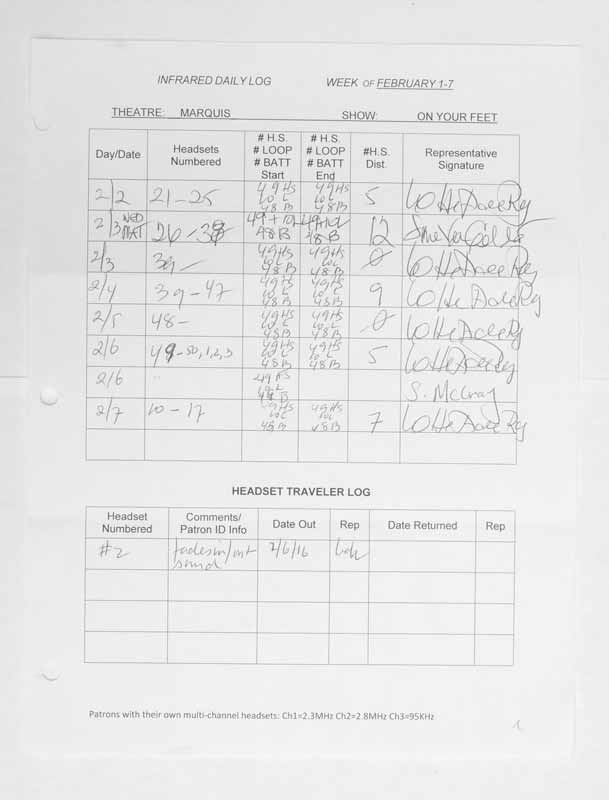 INFRARED DAILY LOG WEEK OF FEBRUARY 1-7
THEATRE: MARQUIS SHOW: ON YOUR FEET
Day/Date Headsets Numbered # H.S. # LOOP # BATT Start # H.S. # LOOP # BATT End #H.S. Dist. Representative Signature
2/2 21-25 49 Hs 10 L 48 B 49 Hs 10 L 48 B 5
2/3 WED MAT 26-38 49+10L 48 B 49+10L 48 B 12
2/3 39- 49 Hs 10L 48 B 49 Hs 10L 48 B 0
2/4 39-47 49 Hs 10 L 48 B 49 Hs 10 L 48 B 9
2/5 48- 49 Hs 10 L 48 B 49 Hs 10 L 48 B 0
2/6 49-50,1,2,3 49 Hs 10 L 48 B 49 Hs 10 L 48 B 5
2/6 " 49 Hs 10 L 48 B S. McCray
2/7 10-17 49 Hs 10 L 48 B 49 Hs 10 L 48 B 7
HEADSET TRAVELER LOG
Headset Numbered Comments/ Patron ID Info Date Out Rep Date Returned Rep
#2 fades in/out sound 2/6/16
Patrons with their own multi-channel headsets: Ch1=2.3MHz Ch2=2.8MHz Ch3=95KHz